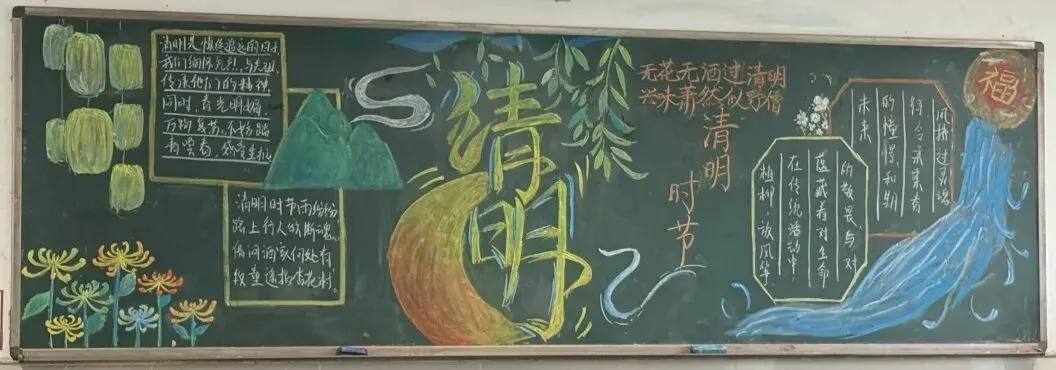 清明是慎终追远的日子,
我们缅怀先烈,与先祖,
传承他们的精神,
同时,春光明媚,
万物复苏,不妨踏
青赏春,感受生机
清明时节雨纷纷,
路上行人欲断魂。
借问酒家何处有
牧童遥指杏花村。
清明
无花无酒过清明
兴味萧然似野僧
清明
时节
植柳、放风筝
在传统活动中
蕴藏着对生命
的敬畏,与对
未来
的憧憬和期
待令未来有
福